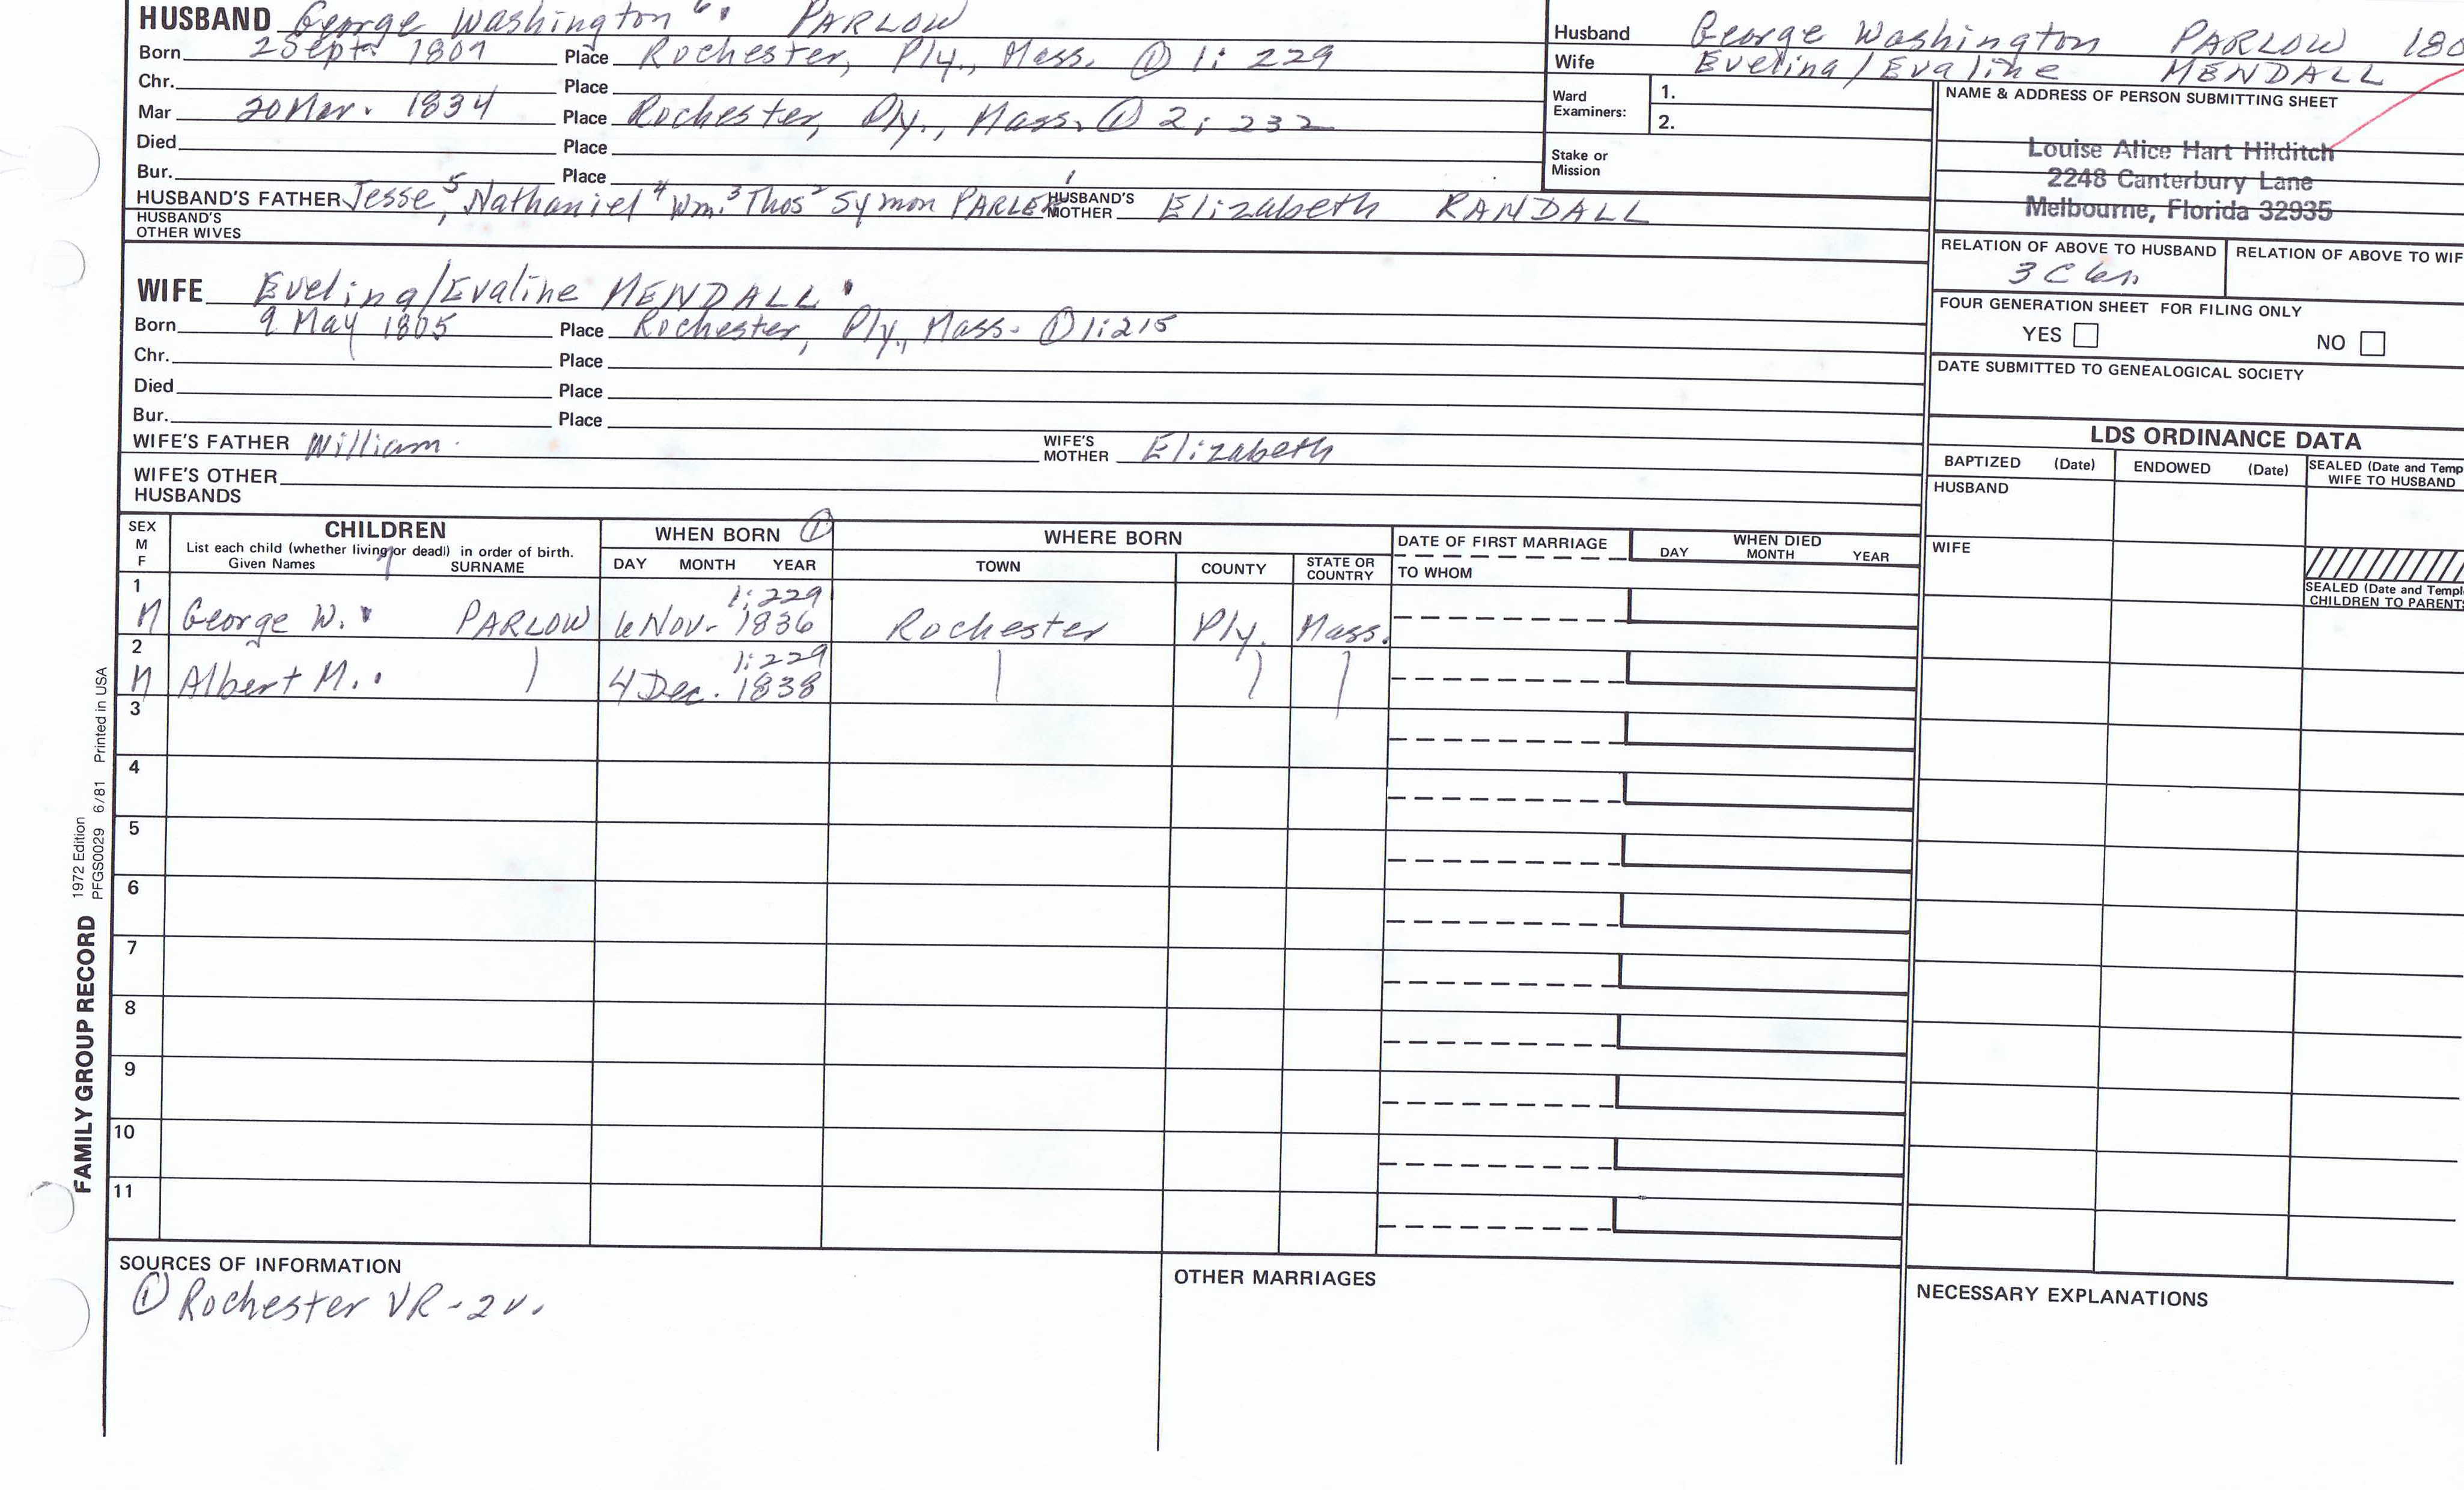 HUSBAND George Washington 6. PARLOW
Born 2 Sept. 1807 Place Rochester, Ply., Mass. ① 1: 229
Chr. Place
Mar 20 Nov. 1834 Place Rochester, Ply., Mass. ① 2: 232
Died Place
Bur. Place
HUSBAND'S FATHER Jesse 5, Nathaniel 4 Wm. 3 Thos 2 Symon 1 HUSBAND'S MOTHER Elizabeth RANDALL
HUSBAND'S OTHER WIVES
Husband George Washington PARLOW 180
Wife Evelina/Evaline MENDALL
Ward Examiners: 1.
2.
Stake or Mission
NAME & ADDRESS OF PERSON SUBMITTING SHEET
Louise Alice Hart Hilditch
2248 Canterbury Lane
Melbourne, Florida 32935
RELATION OF ABOVE TO HUSBAND RELATION OF ABOVE TO WIF
3 C 6
FOUR GENERATION SHEET FOR FILING ONLY
YES NO
DATE SUBMITTED TO GENEALOGICAL SOCIETY
WIFE Evelina/Evaline MENDALL
Born 9 May 1805 Place Rochester, Ply., Mass. ① 1:215
Chr. Place
Died Place
Bur. Place
WIFE'S FATHER William WIFE'S MOTHER Elizabeth
WIFE'S OTHER HUSBANDS
LDS ORDINANCE DATA
BAPTIZED (Date) ENDOWED (Date) SEALED (Date and Temp
WIFE TO HUSBAND
HUSBAND
WIFE
SEALED (Date and Templ
CHILDREN TO PARENTS
SEX M F CHILDREN WHEN BORN ① WHERE BORN DATE OF FIRST MARRIAGE WHEN DIED
List each child (whether living or dead) in order of birth.
Given Names SURNAME DAY MONTH YEAR TOWN COUNTY STATE OR COUNTRY TO WHOM DAY MONTH YEAR
1 1:229
M George W. PARLOW 6 Nov. 1836 Rochester Ply. Mass.
2 1:229
M Albert M. 4 Dec. 1838
3
4
5
6
7
8
9
10
11
FAMILY GROUP RECORD
1972 Edition
PFGS0029 6/81 Printed in USA
SOURCES OF INFORMATION
① Rochester VR - 2 v.
OTHER MARRIAGES
NECESSARY EXPLANATIONS